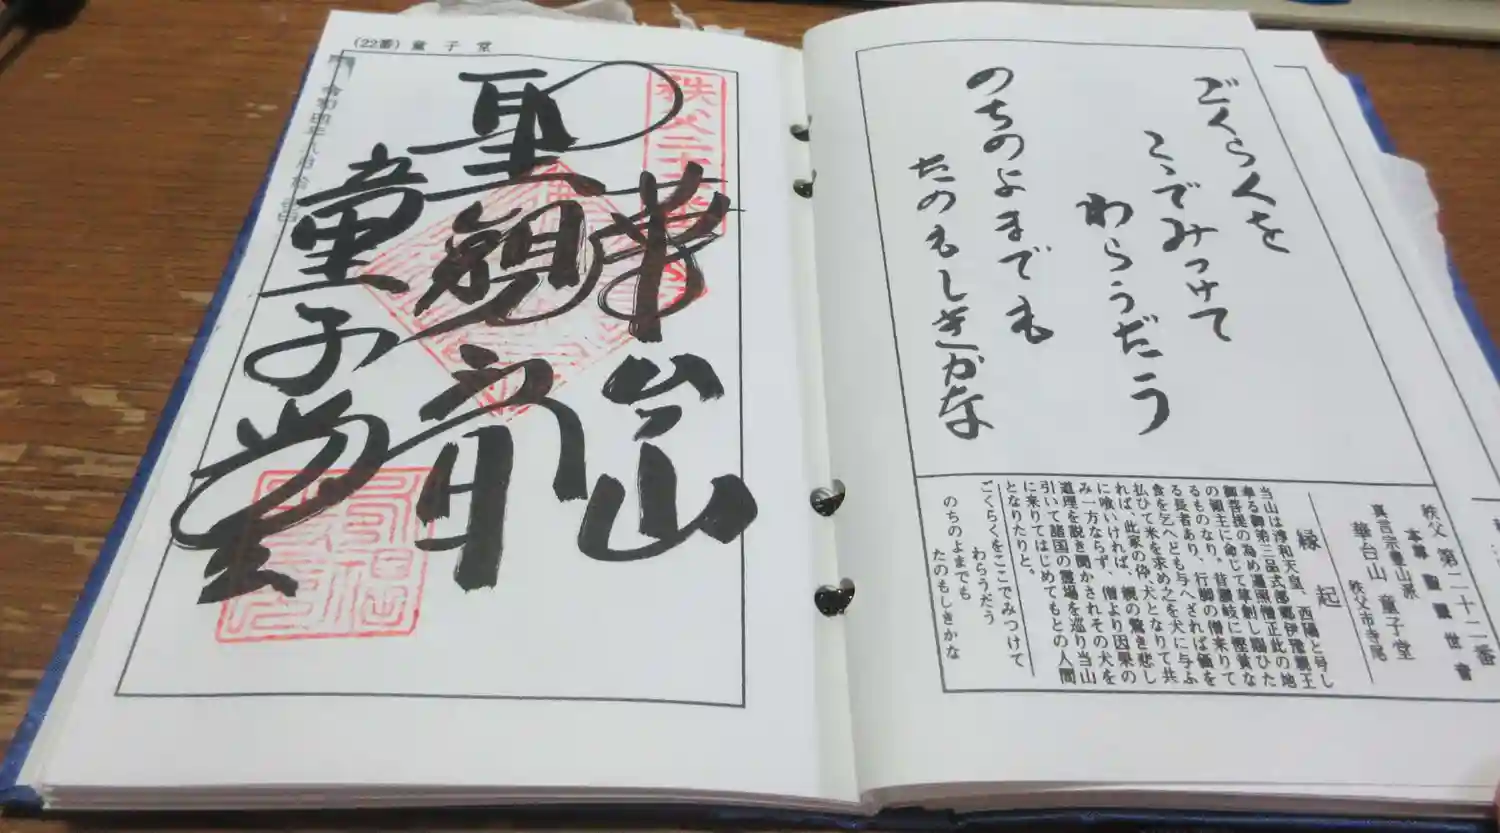 ごくらくを
こゝでみつけて
わらうだう
のちのよまでも
たのもしきかな
秩父 第二十二番
本尊 聖観世音
真言宗豊山派
華台山 童子堂
秩父市寺尾
縁起
当山は淳和天皇、西陽と号し
奉る御弟三品式部卿伊豫親王
御菩提の為め遍照僧正此の地
の領主に命じて草創し賜ひた
るものなり。昔讃岐に慳貪な
る長者あり、行脚の僧来りて
食を乞へども与へざれば価を
払ひて米を求め之を犬に与ふ
れば、此家の伜、犬となりて共
に喰いければ、親の驚き悲し
み一方ならず、僧より因果の
道理を説き聞かされその犬を
引いて諸国の霊場を巡り当山
に来りてはじめてもとの人間
となりたりと。
ごくらくをここでみつけて
わらうだう
のちのよまでも
たのもしきかな
(22番) 童子堂
華台山
聖観音
童子堂